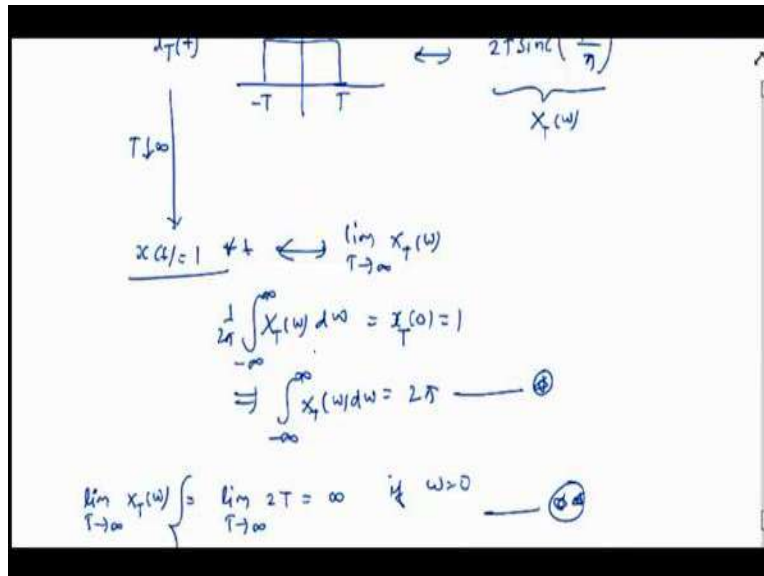 x_T(t) ⟷ 2T sinc( /π)
-T T
X_T(ω)
T↓∞
x(t)=1 ∀t ⟷ lim_{T→∞} X_T(ω)
1/2π ∫_{-∞}^{∞} X_T(ω) dω = x_T(0) = 1
⇒ ∫_{-∞}^{∞} X_T(ω) dω = 2π ——
lim_{T→∞} X_T(ω) { = lim_{T→∞} 2T = ∞ if ω=0 ——